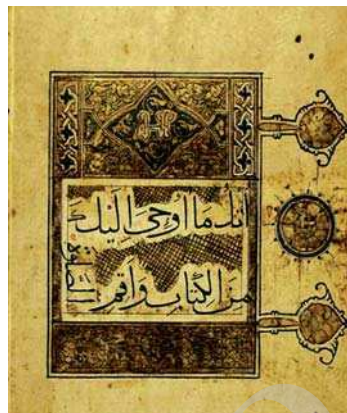 اتل مَا اوحِيَ اِلَيْكَ
مِنَ الكِتَابِ وَاَقِمِ
الصلوة